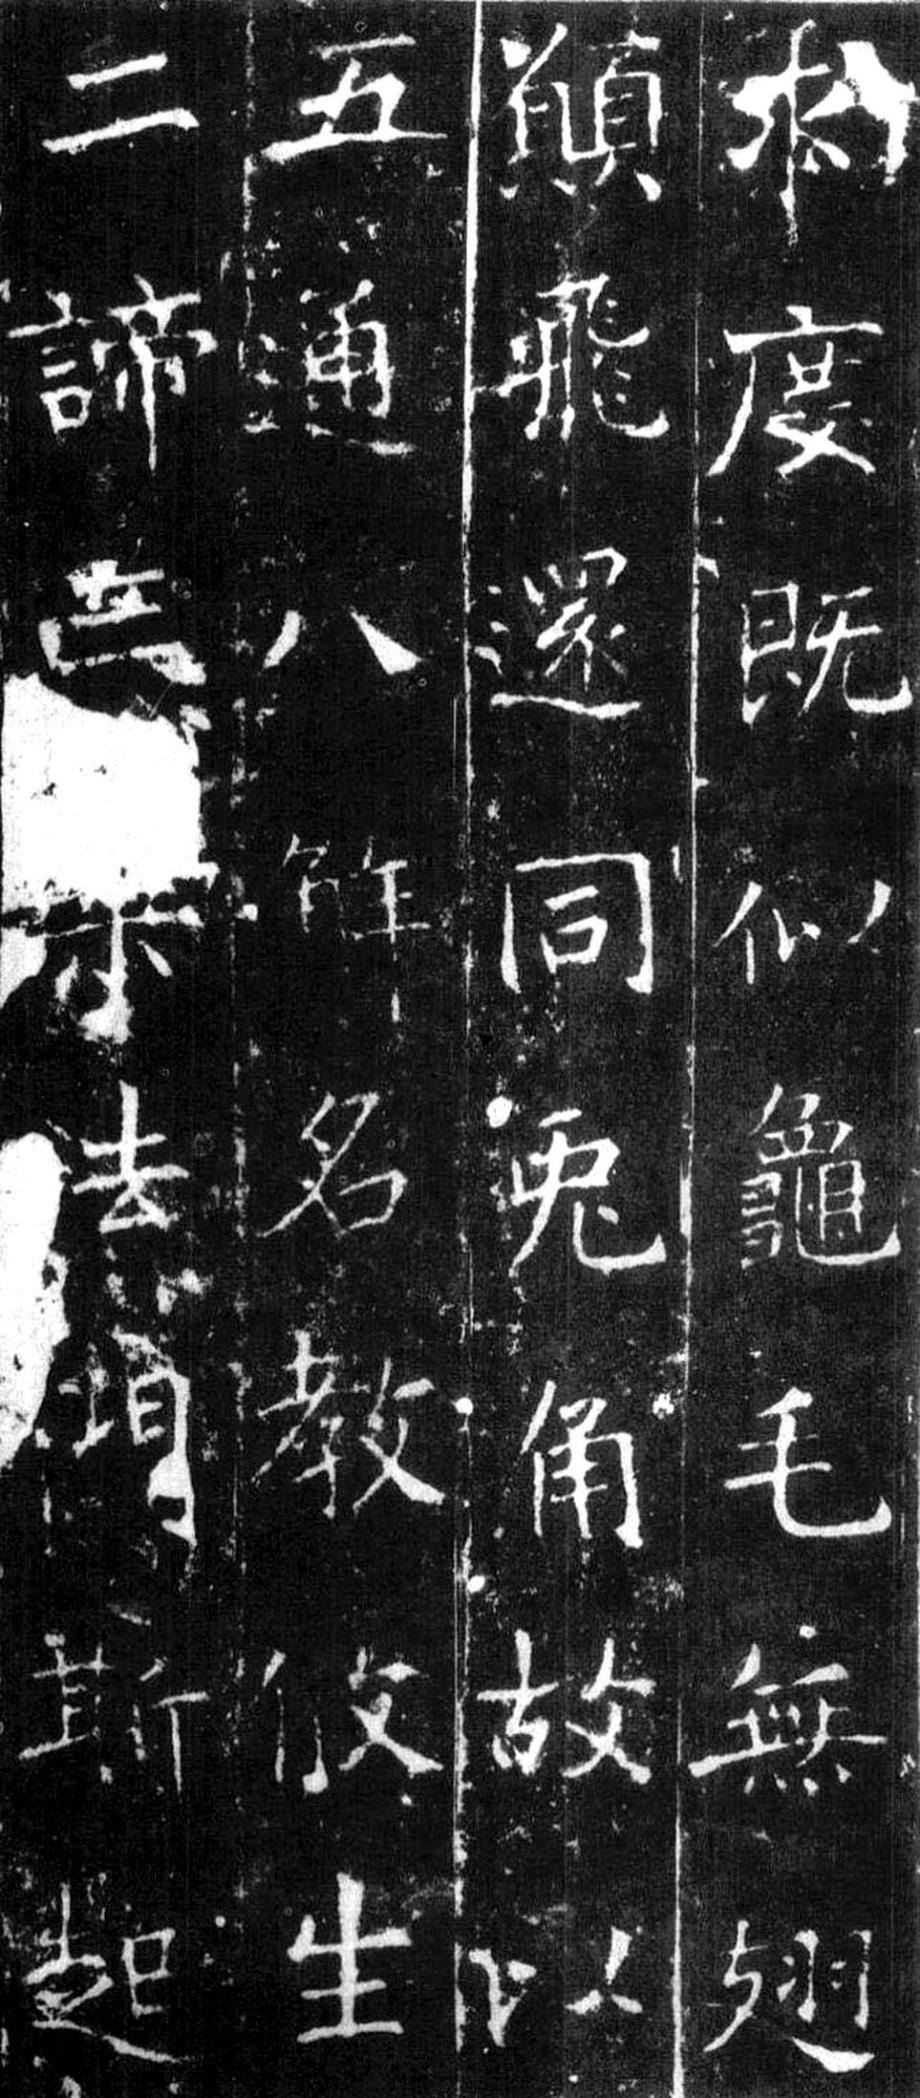 度既似龜毛無翅
願飛還同兎角故以
五通八解名教攸生
二諦去斯起